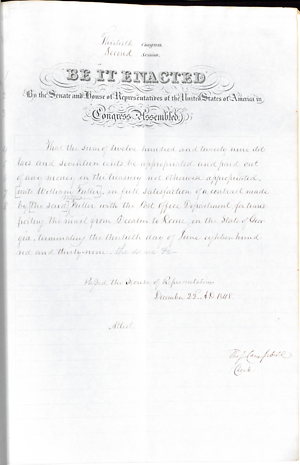 Thirtieth Congress
Second Session
BE IT ENACTED
By the Senate and House of Representatives of the United States of America in
Congress Assembled,
That the sum of twelve hundred and twenty nine dol
lars and seventeen cents be appropriated and paid out
of any money in the treasury not otherwise appropriated,
unto William Fuller, in full satisfaction of a contract made
by the said Fuller with the Post Office Department, for trans
porting the mail from Decatur to Rome, in the State of Geor
gia, terminating the thirtieth day of June eighteen hund
red and thirty-
Passed the House of Representatives
December 22, A.D. 1848.
Attest
Th. J. Campbell
Clerk